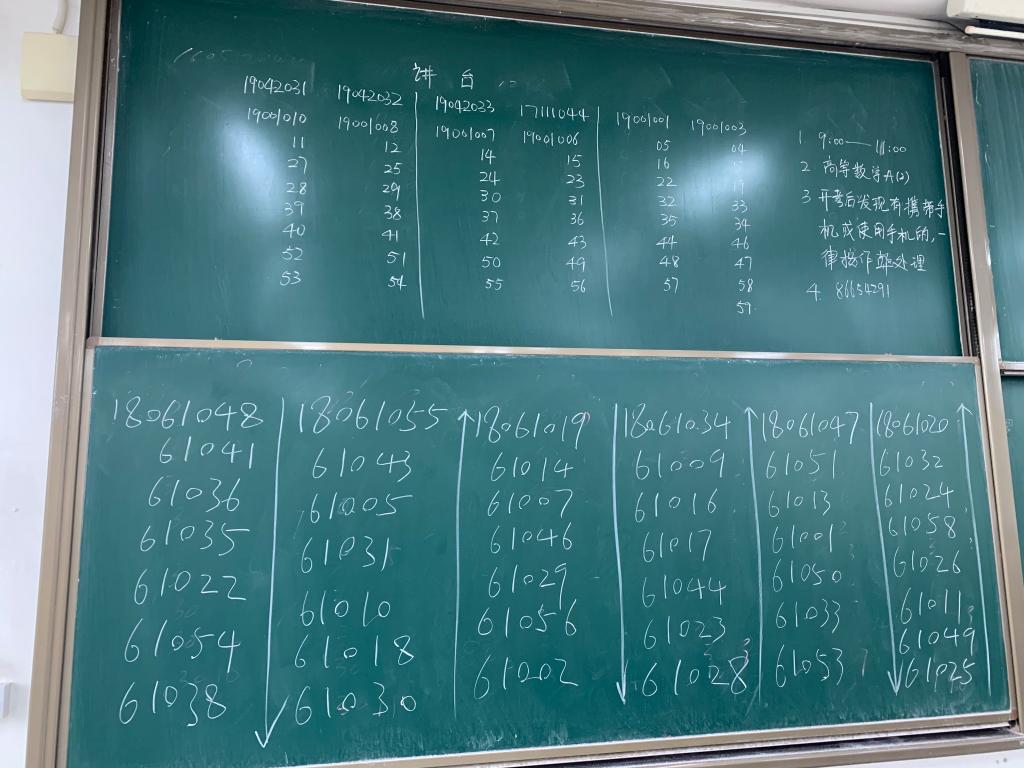 讲台
19042031 19042032 19042023 17111044 19001001 19001003
19001010 19001008 19001007 19001006 05 04
11 12 14 15 16
27 25 24 23 22 19
28 29 30 31 32 33
39 38 37 36 35 34
40 41 42 43 44 46
52 51 50 49 48 47
53 54 55 56 57 58
57
1 9:00——11:00
2 高等数学A(2)
3 开考后发现有携带手
机或使用手机的,一
律按作弊处理
4. 86654291
18061048 18061055 18061019 18061034 18061047 18061020
61041 61043 61014 61009 61051 61032
61036 61005 61007 61016 61013 61024
61035 61031 61046 61017 61001 61058
61022 61010 61029 61044 61050 61026
61054 61018 61056 61023 61033 61011
61038 61030 61002 61028 61053 61049
61025